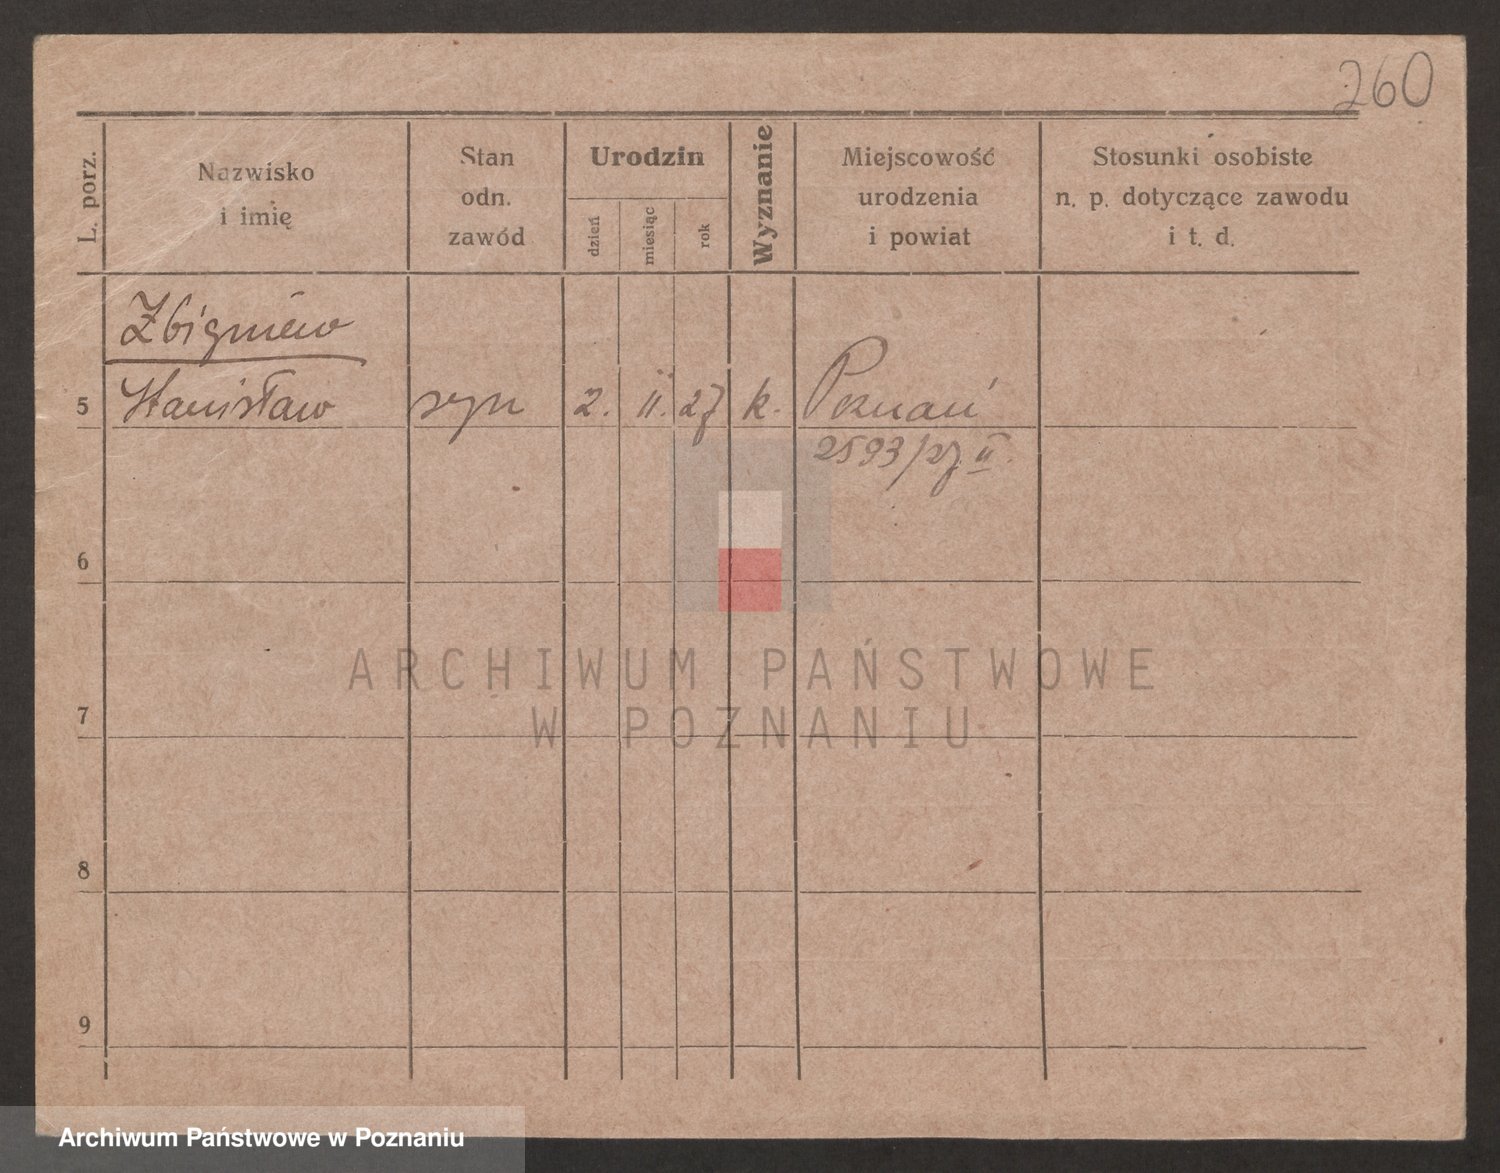 260
L. porz.
Nazwisko
i imię
Stan
odn.
zawód
Urodzin
dzień
miesiąc
rok
Wyznanie
Miejscowość
urodzenia
i powiat
Stosunki osobiste
n. p. dotyczące zawodu
i t. d.
Zbigniew
5 Stanisław syn 2. II. 27 k. Poznań
2593/27 II.
6
7
8
9
ARCHIWUM PAŃSTWOWE
W POZNANIU
Archiwum Państwowe w Poznaniu